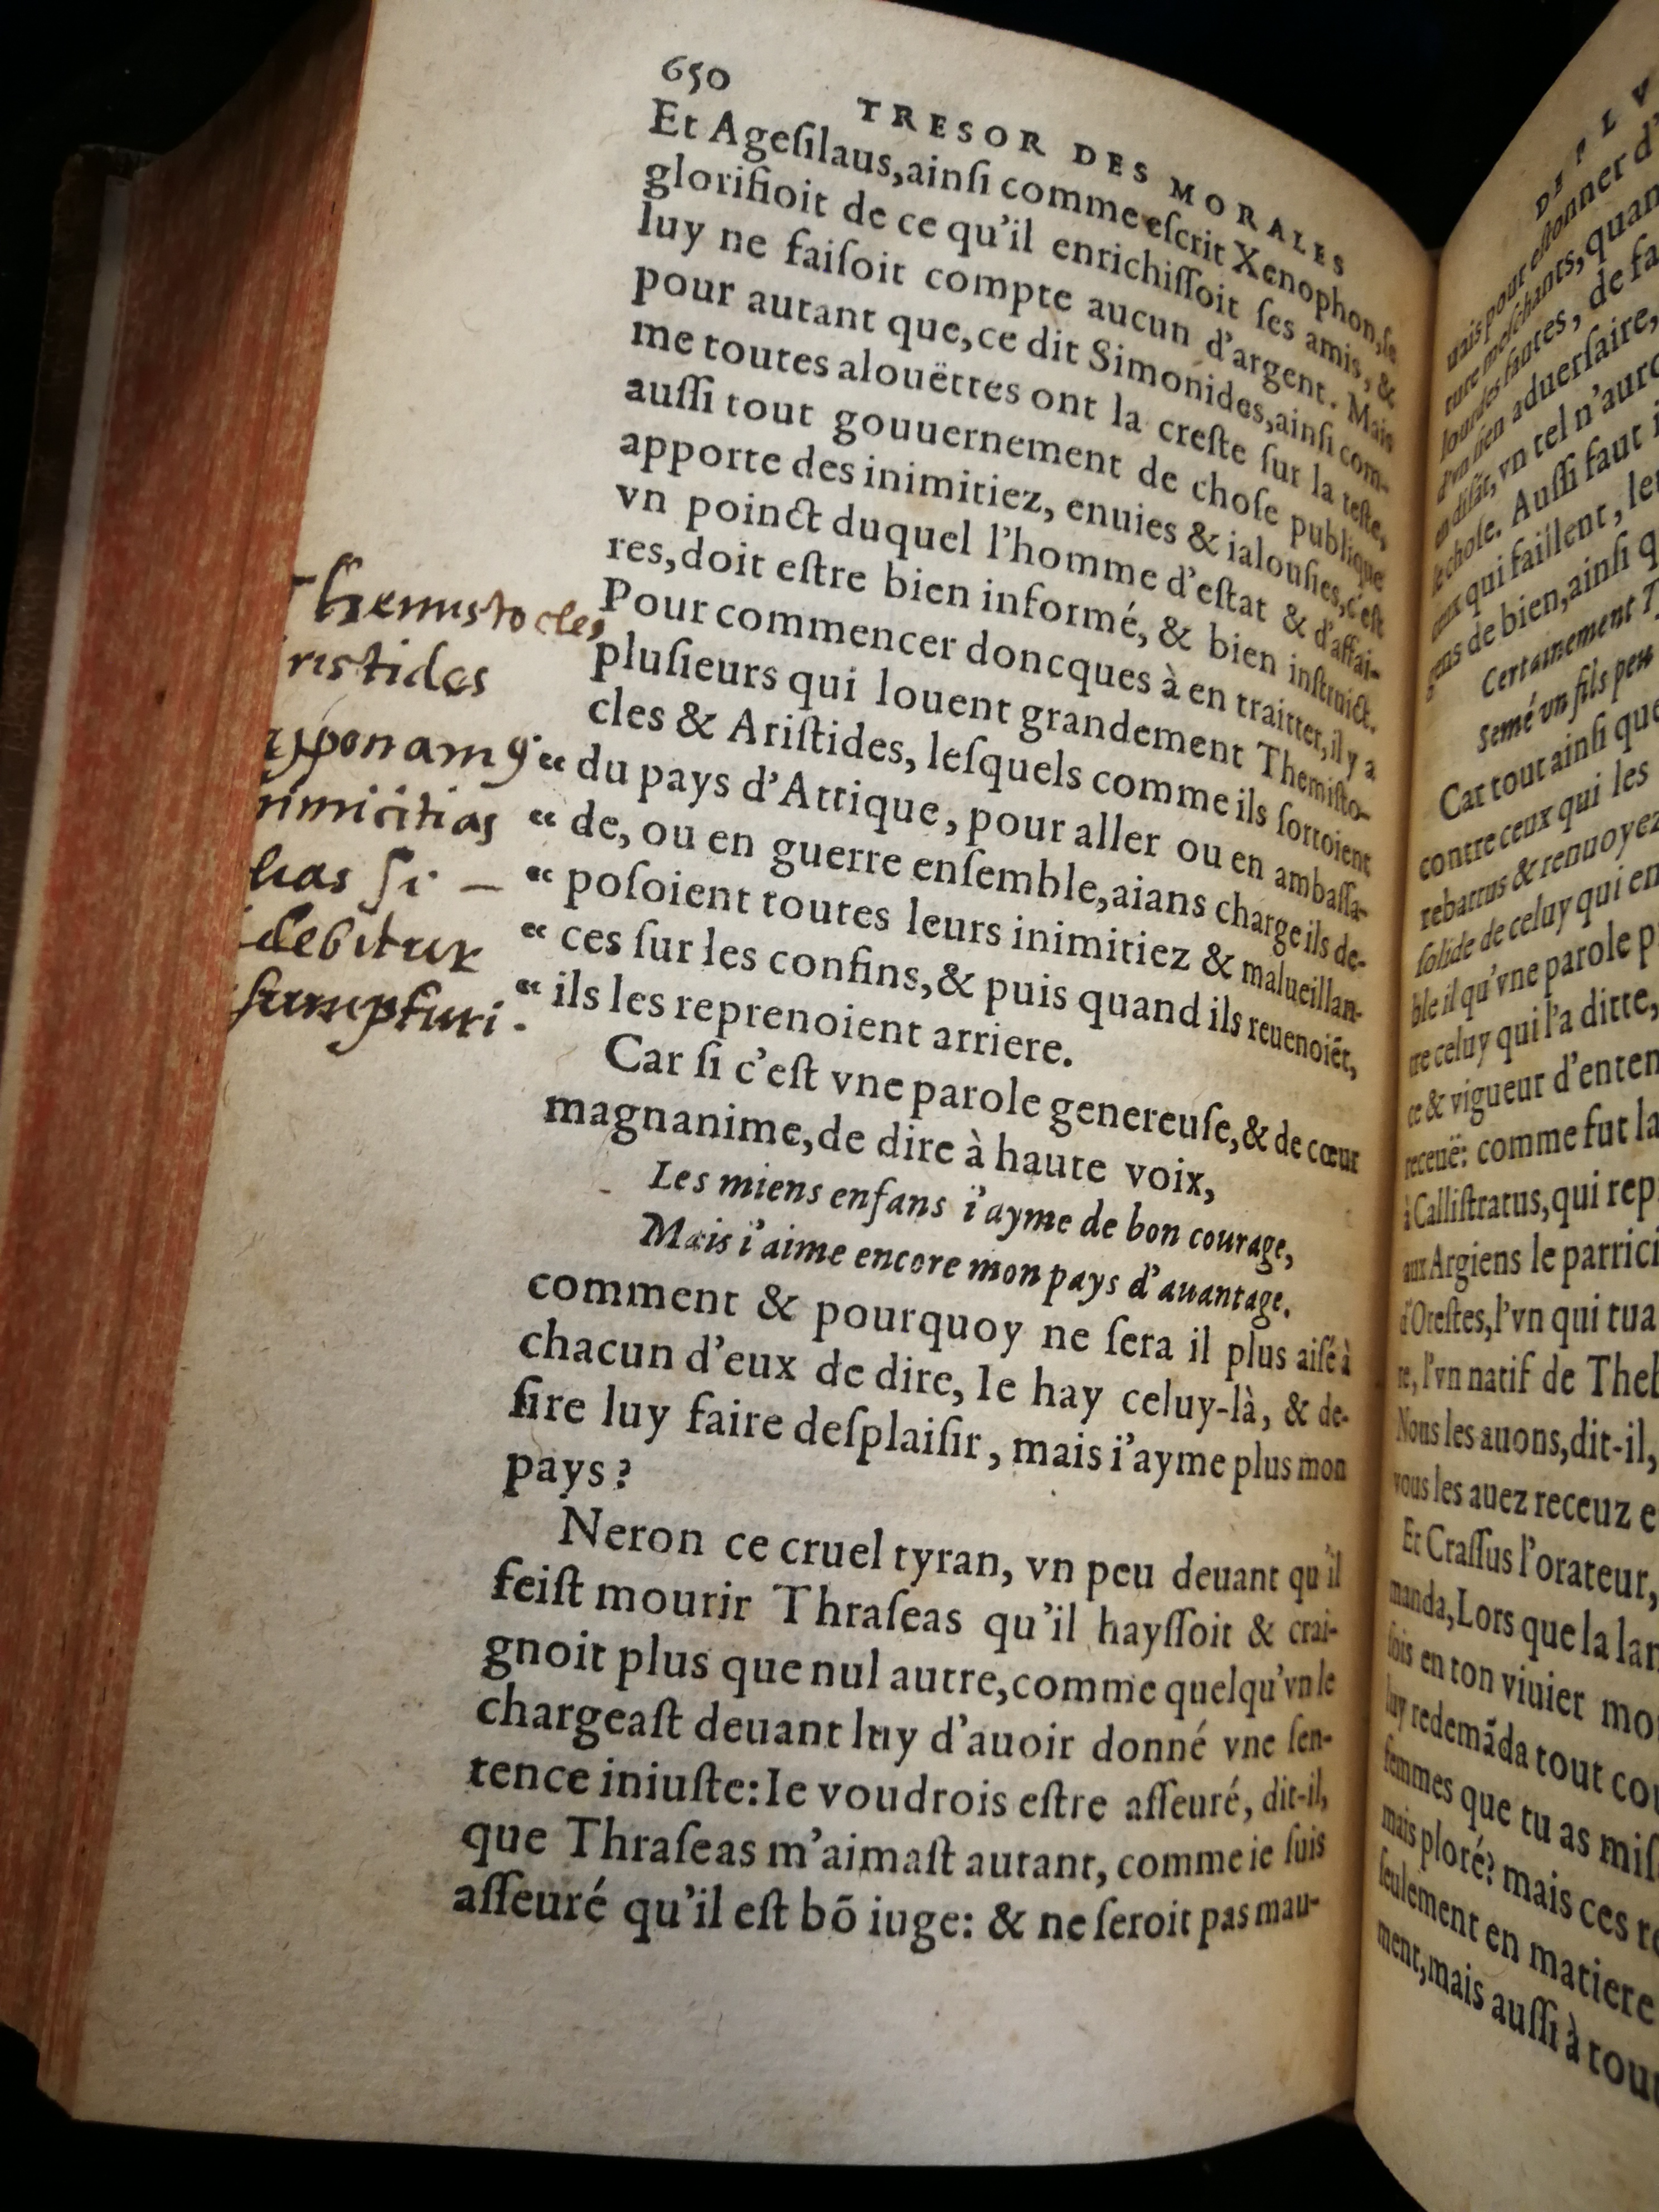 650 TRESOR DES MORALES
Et Ageſilaus,ainſi comme eſcrit Xenophon,ſe
glorifioit de ce qu'il enrichiſſoit ſes amis, &
luy ne faiſoit compte aucun d'argent. Mais
pour autant que,ce dit Simonides,ainſi com-
me toutes alouëttes ont la creſte ſur la teſte,
auſſi tout gouuernement de choſe publique
apporte des inimitiez, enuies & ialouſies,c'eſt
vn poinct duquel l'homme d'eſtat & d'affai-
res,doit eſtre bien informé, & bien inſtruict.
Pour commencer doncques à en traitter,il y a
pluſieurs qui louent grandement Themiſto-
cles & Ariſtides, leſquels comme ils ſortoient
“ du pays d'Attique, pour aller ou en ambaſſa-
“ de, ou en guerre enſemble,aians charge ils de-
“ poſoient toutes leurs inimitiez & malueillan-
“ ces ſur les confins,& puis quand ils reuenoiẽt,
“ ils les reprenoient arriere.
Car ſi c'eſt vne parole genereuſe,& de cœur
magnanime,de dire à haute voix,
Les miens enfans i'ayme de bon courage,
Mais i'aime encore mon pays d'auantage.
comment & pourquoy ne ſera il plus aiſé à
chacun d'eux de dire, Ie hay celuy-là, & de-
ſire luy faire deſplaiſir, mais i'ayme plus mon
pays?
Neron ce cruel tyran, vn peu deuant qu'il
feiſt mourir Thraſeas qu'il hayſſoit & crai-
gnoit plus que nul autre,comme quelqu'vn le
chargeaſt deuant luy d'auoir donné vne ſen-
tence iniuſte:Ie voudrois eſtre aſſeuré, dit-il,
que Thraſeas m'aimaſt autant, comme ie ſuis
aſſeuré qu'il eſt bõ iuge: & ne ſeroit pas mau-
Themistocles
ristides
ponamꝰ
nimicitias
has si
debitur
sumpturi.
DE PLV
uais pour eſtonner d'
ture meſchants,quan
lourdes fautes, de fa
d'vn ſien aduerſaire,
en diſãt, vn tel n'auro
le choſe. Auſſi faut i
ceux qui faillent, le
gens de bien,ainſi q
Certainement T
Semé vn fils peu
Car tout ainſi que
contre ceux qui les
rebarrus & renuoyez
ſolide de celuy qui en
ble il qu'vne parole p
tre celuy qui l'a ditte,
ce & vigueur d'enten
receuë: comme fut la
à Calliſtratus,qui rep
aux Argiens le parrici
d'Oreſtes,l'vn qui tua
re, l'vn natif de Theb
Nous les auons,dit-il,
vous les auez receuz e
Et Craſſus l'orateur,
manda,Lors que la lam
fois en ton viuier mo
luy redemãda tout cou
femmes que tu as miſ
mais ploré? mais ces re
ſeulement en matiere
ment,mais auſſi à tout